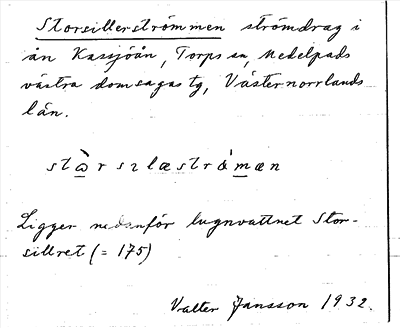 Storsillerströmmen strömdrag i
ån Kassjöån, Torps sn, Medelpads
västra domsagas tg, Västernorrlands
län.
stɷ̀r sɩlæstrǻmæn
Ligger nedanför lugnvattnet Stor-
sillret (= 175)
Valter Jansson 1932.